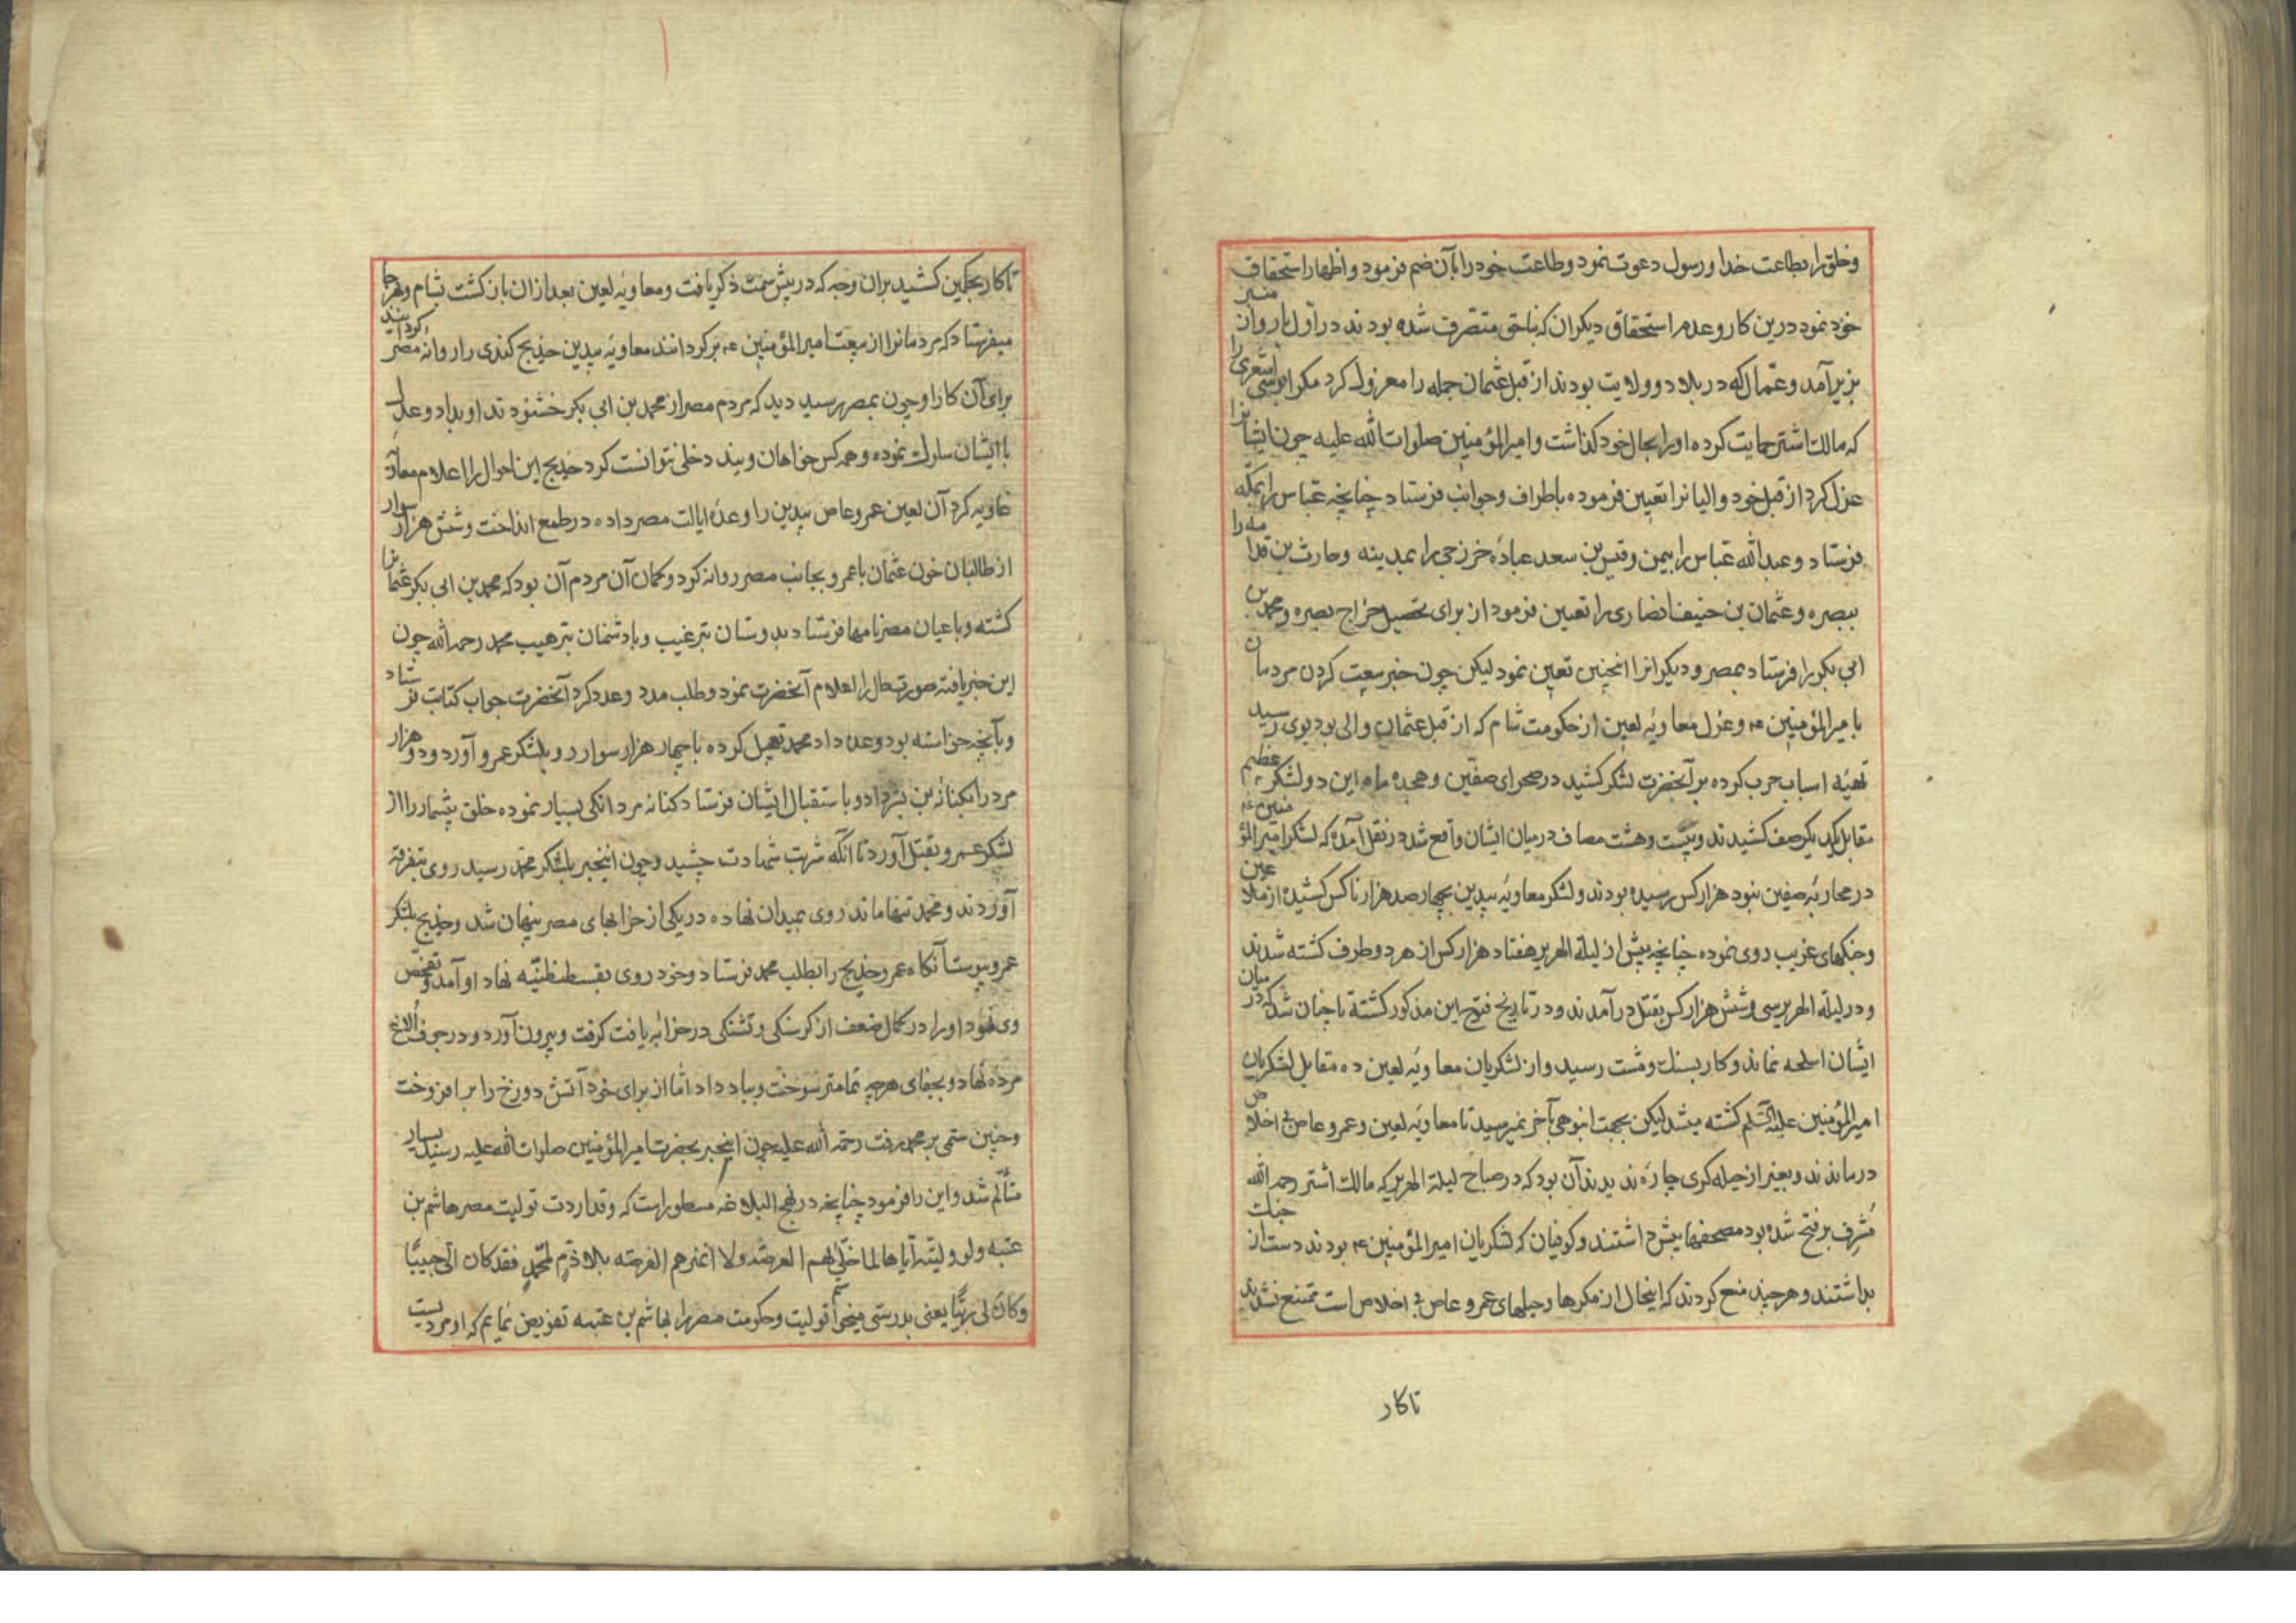 وخلق را بطاعت خدا و رسول دعوت نمود وطاعت خود را بآن ضم فرمود و اظهار استحقاق
خود نمود درین کار وعدم استحقاق دیکران که بناحق متصرف شده بودند در اول بار وان منبر
بزیر آمد وعمال که در بلاد و ولایت بودند از قبل عثمان جمله را معزول کرد مکر ابوموسی اشعری را
که مالک اشتر حمایت کرده او را بحال خود کذاشت و امیرالمؤمنین صلوات الله علیه چون ایشانرا
عزل کرد از قبل خود والیانرا تعیین فرموده باطراف وجوانب فرستاد چنانچه عباس را بمکه
فرستاد وعبدالله عباس را بیمن وقیس بن سعد عباده خزرجی را بمدینه وحارث بن قدامه را
ببصره وعثمان بن حنیف انصاری را تعیین فرمود از برای تحصیل خراج بصره ومحمد بن
ابی بکر را فرستاد بمصر و دیکرانرا اینچنین تعیین نمود لیکن چون خبر بیعت کردن مردمان
با میرالمؤمنین ع وعزل معاویه لعین از حکومت شام که از قبل عثمان والی بود بوی رسید
تهیه اسباب حرب کرده بر آنحضرت لشکر کشید در صحرای صفین وهجده ماه این دو لشکر عظیم
مقابل یکدیکر صف کشیدند وبیست وهشت مصاف در میان ایشان واقع شد در نقل آمده که لشکر امیرالمؤمنین ع
در محاربه صفین بنود هزار کس رسیده بودند ولشکر معاویه بیدین بچهارصد هزار ناکس کشیده از ملاعین
وجنکهای غریب روی نموده چنانچه پیش از لیلة الهریر هفتاد هزار کس از هر دو طرف کشته شدند
و در لیلة الهریر سی وشش هزار کس بقتل در آمدند و در تاریخ فتوح این مذکور کشته تا چنان شد که در میان
ایشان اسلحه نماند وکار بسنک ومشت رسید واز لشکریان معاویه لعین ده مقابل لشکریان
امیرالمؤمنین علیه السلم کشته میشد لیکن بجهت انبوهی بآخر نمیرسید تا معاویه لعین وعمرو عاص بی اخلاص
درماندند وبغیر از حیله کری چاره ندیدند آن بود که در صباح لیلة الهریر که مالک اشتر رحمه الله
مشرف بر فتح شده بود مصحفها پیش داشتند وکوفیان که لشکریان امیرالمؤمنین ع بودند دست از جنک
بداشتند وهر چند منع کردند که اینحال از مکرها وحیلهای عمرو عاص بی اخلاص است ممتنع نشدند
تا کار
تا کار بحکمین کشید بران وجه که در پیش سمت ذکر یافت ومعاویه لعین بعد ازان باز کشت بشام وهر جا
میفرستاد که مردمانرا از بیعت امیرالمؤمنین ع برکردانند معاویه بیدین خدیج کندی را روانه مصر کردانید
برای آن کار او چون بمصر رسید دید که مردم مصر از محمد بن ابی بکر خشنودند او بداد وعدل
با ایشان سلوک نموده وهمه کس خواهان ویند دخلی نتوانست کرد خدیج این احوال را اعلام معاویه
غاویه کرد آن لعین عمرو عاص بیدین را وعده ایالت مصر داده در طمع انداخت وشش هزار سوار
از طالبان خون عثمان با عمرو بجانب مصر روانه کرد وکمان آن مردم آن بود که محمد بن ابی بکر عثمانرا
کشته و باعیان مصر نامها فرستاد بدوستان بترغیب وبا دشمنان بترهیب محمد رحمه الله چون
این خبر یافته صورتحال را اعلام آنحضرت نمود وطلب مدد وعدد کرد آنحضرت جواب کتابت فرستاد
وبآنچه خواسته بود وعده داد محمد تعجیل کرده با چهار هزار سوار رو بلشکر عمرو آورد و دو هزار
مرد را بکنانه بن بشر داد و باستقبال ایشان فرستاد کنانه مردانکی بسیار نموده خلق بیشمار را از
لشکر عمرو بقتل آورد تا آنکه شربت شهادت چشید وچون اینخبر بلشکر محمد رسید روی بتفرقه
آوردند ومحمد تنها ماند روی بمیدان نهاده در یکی از خرابهای مصر پنهان شد وخدیج بلشکر
عمرو پیوست آنکاه عمرو خدیج را بطلب محمد فرستاد وخود روی بقسطنطنیه نهاد او آمد وتفحص
وی نمود او را در کمال ضعف از کرسنکی وتشنکی در خرابه یافت کرفت وبیرون آورد و در جوف الاغ
مرده نهاد وبجفای هر چه تمامتر سوخت وبباد داد اما از برای خود آتش دوزخ را بر افروخت
وچنین ستمی بر محمد رفت رحمة الله علیه چون اینخبر بحضرت امیرالمؤمنین صلوات الله علیه رسید بسیار
متألم شد واین را فرمود چنانچه در نهج البلاغه مسطور است که وقد اردت تولیت مصر هاشم بن
عتبه ولو ولیته ایاها لما خلی لهم العرصه ولا انهزهم الفرصه بلا ذم لمحمد فقد کان الی حبیبا
وکان لی ربیبا یعنی بدرستی میخواستم تولیت وحکومت مصر را بهاشم بن عتبه تفویض نمایم که او مردیست